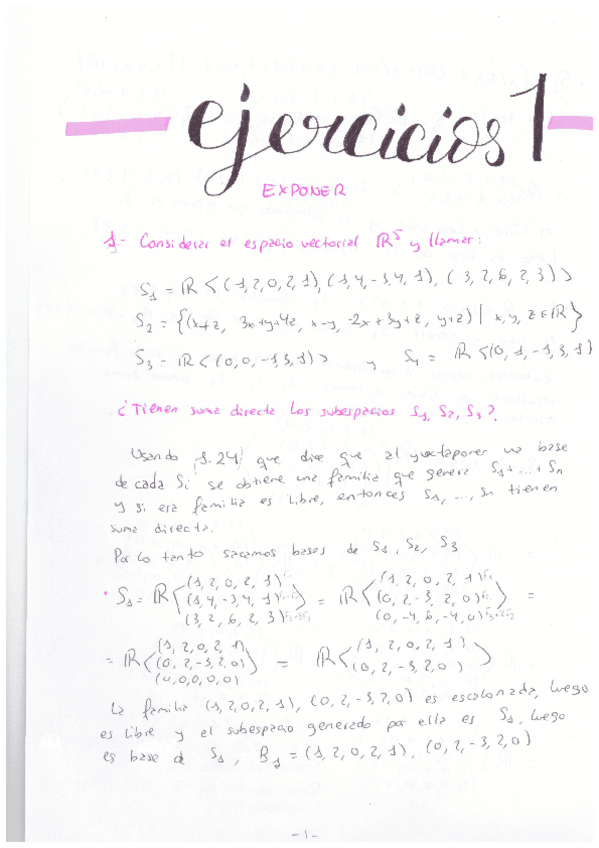 ejercicios 1
EXPONER
1.- Considerar el espacio vectorial ℝ⁵ y llamar:
S₁ = ℝ<(1,2,0,2,1), (1,4,-3,4,1), (3,2,6,2,3)>
S₂ = {(x+z, 3x+y+4z, x-y, -2x+3y+z, y+z) | x,y,z∈ℝ}
S₃ = ℝ<(0,0,-1,3,1)> y S₄ = ℝ<(0,1,-1,3,1)
¿Tienen suma directa los subespacios S₁, S₂, S₃?
Usando 1.24, que dice que al yuxtaponer una base
de cada Si se obtiene una familia que genera S₁+...+Sn
y si esa familia es libre, entonces S₁, ..., Sn tienen
suma directa.
Por lo tanto sacamos bases de S₁, S₂, S₃
• S₁ = ℝ<(1,2,0,2,1) (1,4,-3,4,1) (3,2,6,2,3)> = ℝ<(1,2,0,2,1) (0,2,-3,2,0) (0,-4,6,-4,0)> =
= ℝ<(1,2,0,2,1) (0,2,-3,2,0) (0,0,0,0,0)> = ℝ<(1,2,0,2,1) (0,2,-3,2,0)>
La familia (1,2,0,2,1), (0,2,-3,2,0) es escalonada, luego
es libre y el subespacio generado por ella es S₁, luego
es base de S₁, B₁ = (1,2,0,2,1), (0,2,-3,2,0)
-1-